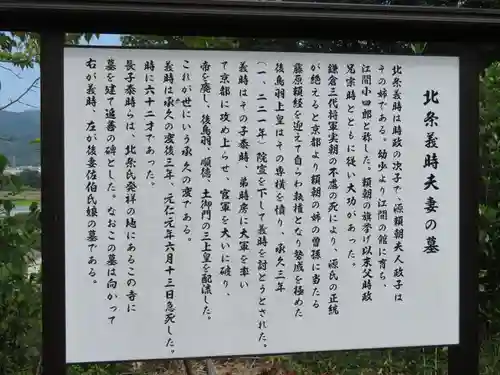 北条義時夫妻の墓
北条義時は時政の次子で、源頼朝夫人政子は
その姉である。幼少より江間の館に育ち、
江間小四郎と称した。頼朝の旗挙げ以来父時政
兄宗時とともに従い大功があった。
鎌倉三代将軍実朝の不慮の死により、源氏の正統
が絶えると京都より頼朝の姉の曽孫に当たる
藤原頼経を迎えて自らわ執権となり勢威を極めた
後鳥羽上皇はその専横を憤り、承久三年
(一、二二一年)院宣を下して義時を討とうとされた。
義時はその子泰時、弟時房に大軍を率い
て京都に攻め上らせ、官軍を大いに破り、
帝を廃し、後鳥羽、順徳、土御門の三上皇を配流した。
これがいわゆる承久の変である。
義時は承久の変後三年、元仁元年六月十三日急死した。
時に六十二才であった。
長子泰時らは、北条氏発祥の地にあるこの寺に
墓を建て追善の碑とした。なおこの墓は向かって
右が義時、左が後妻佐伯氏娘の墓である。